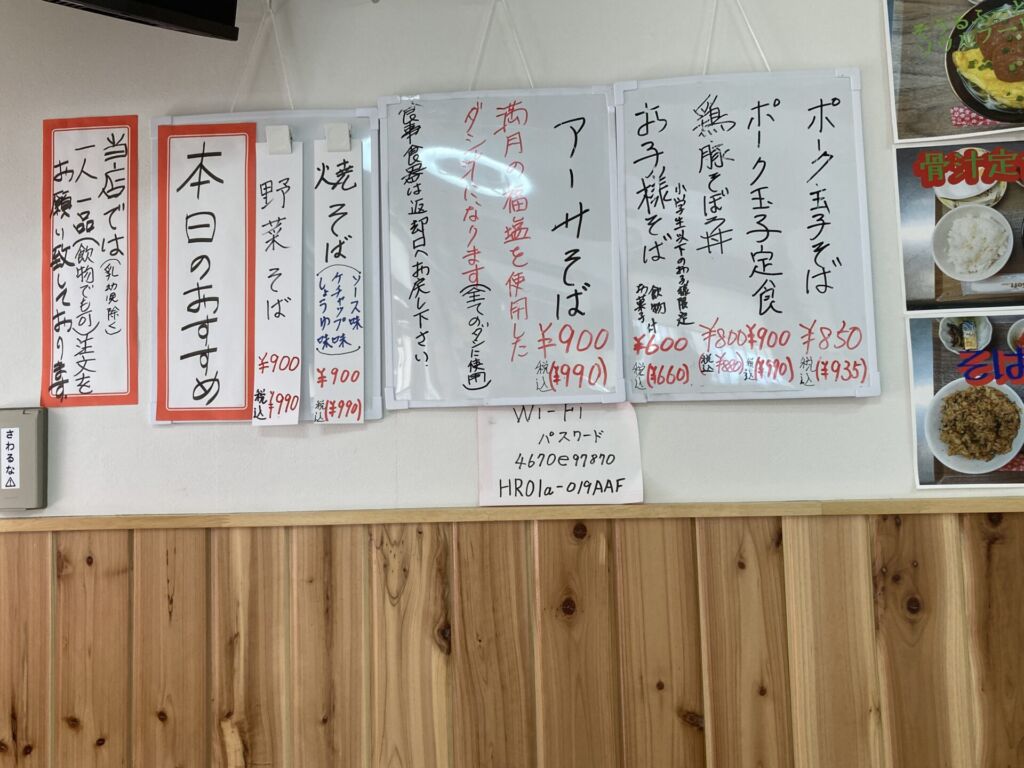 当店では(乳幼児除き)
一人一品(飲物でも可)注文を
お願い致しております
本日のおすすめ
焼そば(ソース味
ケチャップ味
しょうゆ味)
¥900
税込(¥990)
野菜そば
¥900
税込 ¥990
アーサそば
¥900
税込(¥990)
満月の福塩を使用した
ダシオになります(全てのダシに使用)
食事食器は返却口へお戻し下さい.
ポーク玉子そば
¥850
税込(¥935)
ポーク玉子定食
¥900
税込(¥990)
鶏豚そぼろ丼
¥800
税込(¥880)
お子様そば
小学生以下のお子様限定
飲物付
お菓子
¥600
税込(¥660)
Wi-Fi
パスワード
4670e97870
HR01a-019AAF
さわるな⚠
骨汁定
そば